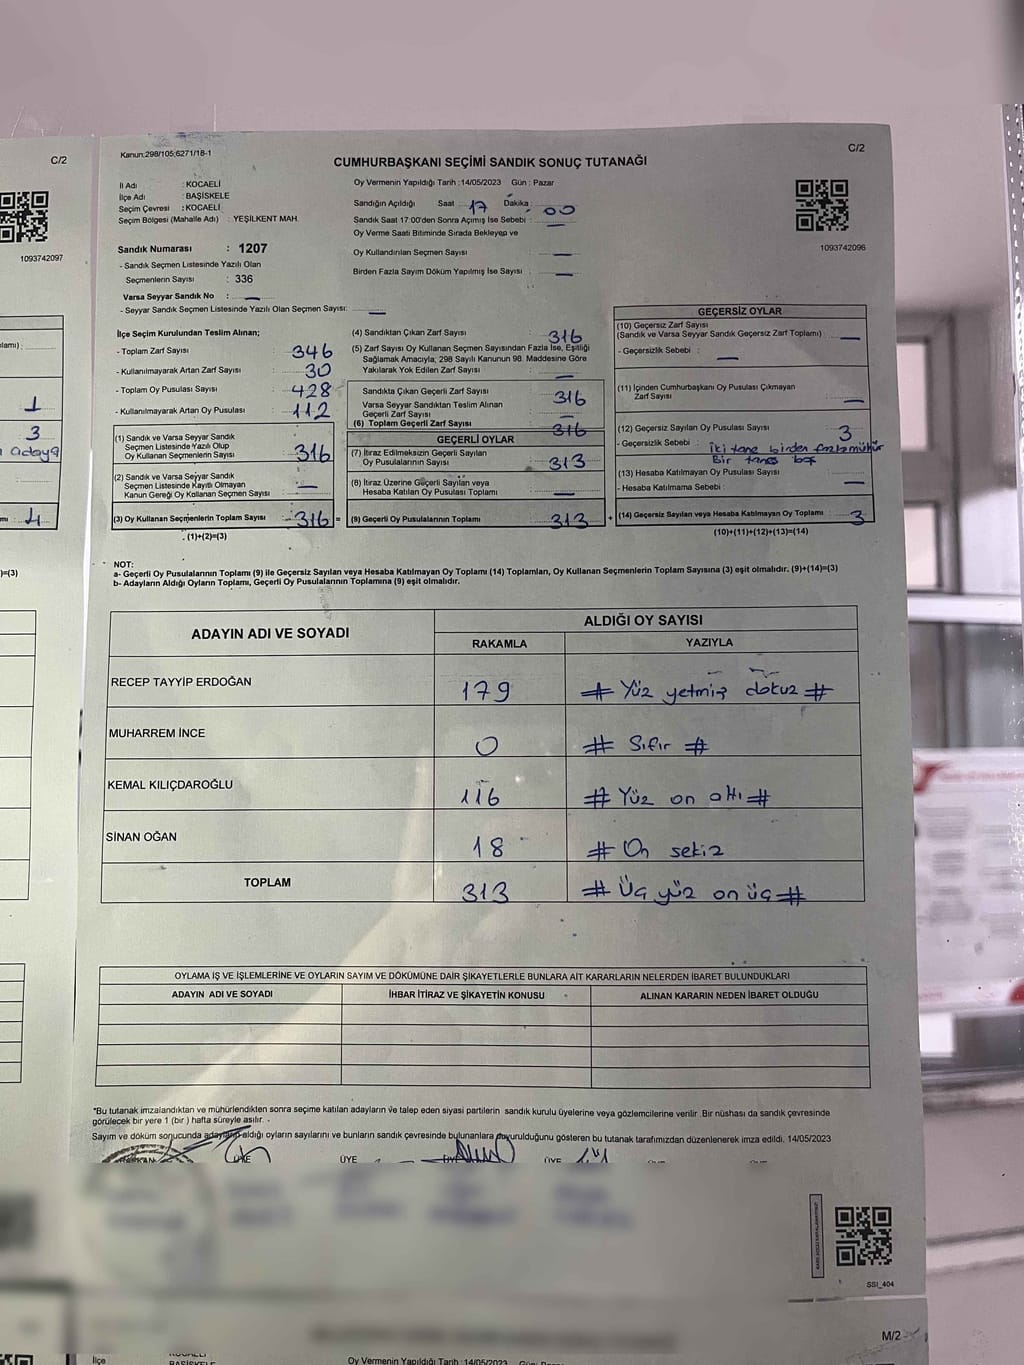 C/2
1093742097
Kanun:298/105;6271/18-1
C/2
CUMHURBAŞKANI SEÇİMİ SANDIK SONUÇ TUTANAĞI
İl Adı : KOCAELİ
İlçe Adı : BAŞİSKELE
Seçim Çevresi : KOCAELİ
Seçim Bölgesi (Mahalle Adı) : YEŞİLKENT MAH.
Oy Vermenin Yapıldığı Tarih :14/05/2023 Gün : Pazar
Sandığın Açıldığı Saat 17 Dakika : 00
Sandık Saat 17:00'den Sonra Açımış İse Sebebi : —
Oy Verme Saati Bitiminde Sırada Bekleyen ve
Oy Kullandırılan Seçmen Sayısı —
Birden Fazla Sayım Döküm Yapılmış İse Sayısı —
1093742096
Sandık Numarası : 1207
- Sandık Seçmen Listesinde Yazılı Olan
Seçmenlerin Sayısı : 336
Varsa Seyyar Sandık No : —
- Seyyar Sandık Seçmen Listesinde Yazılı Olan Seçmen Sayısı: —
İlçe Seçim Kurulundan Teslim Alınan;
- Toplam Zarf Sayısı : 346
- Kullanılmayarak Artan Zarf Sayısı : 30
- Toplam Oy Pusulası Sayısı : 428
- Kullanılmayarak Artan Oy Pusulası : 112
(1) Sandık ve Varsa Seyyar Sandık
Seçmen Listesinde Yazılı Olup
Oy Kullanan Seçmenlerin Sayısı 316
(2) Sandık ve Varsa Seyyar Sandık
Seçmen Listesinde Kayıtlı Olmayan
Kanun Gereği Oy Kollanan Seçmen Sayısı —
(3) Oy Kullanan Seçmenlerin Toplam Sayısı 316 =
(1)+(2)=(3)
(4) Sandıktan Çıkan Zarf Sayısı : 316
(5) Zarf Sayısı Oy Kullanan Seçmen Sayısından Fazla İse, Eşitliği
Sağlamak Amacıyla, 298 Sayılı Kanunun 98. Maddesine Göre
Yakılarak Yok Edilen Zarf Sayısı : —
Sandıkta Çıkan Geçerli Zarf Sayısı 316
Varsa Seyyar Sandıktan Teslim Alınan
Geçerli Zarf Sayısı —
(6) Toplam Geçerli Zarf Sayısı 316
GEÇERLİ OYLAR
(7) İtiraz Edilmeksizin Geçerli Sayılan
Oy Pusulalarının Sayısı 313
(8) İtiraz Üzerine Geçerli Sayılan veya
Hesaba Katılan Oy Pusulası Toplamı —
(9) Geçerli Oy Pusulalarının Toplamı 313 +
GEÇERSİZ OYLAR
(10) Geçersiz Zarf Sayısı
(Sandık ve Varsa Seyyar Sandık Geçersiz Zarf Toplamı) —
- Geçersizlik Sebebi : —
(11) İçinden Cumhurbaşkanı Oy Pusulası Çıkmayan
Zarf Sayısı —
(12) Geçersiz Sayılan Oy Pusulası Sayısı 3
- Geçersizlik Sebebi : İki tane birden fazla mühür
Bir tanesi boş
(13) Hesaba Katılmayan Oy Pusulası Sayısı —
- Hesaba Katılmama Sebebi :
(14) Geçersiz Sayılan veya Hesaba Katılmayan Oy Toplamı 3
(10)+(11)+(12)+(13)=(14)
1
3
adaya
4
)=(3)
NOT:
a- Geçerli Oy Pusulalarının Toplamı (9) ile Geçersiz Sayılan veya Hesaba Katılmayan Oy Toplamı (14) Toplamları, Oy Kullanan Seçmenlerin Toplam Sayısına (3) eşit olmalıdır. (9)+(14)=(3)
b- Adayların Aldığı Oyların Toplamı, Geçerli Oy Pusulalarının Toplamına (9) eşit olmalıdır.
ADAYIN ADI VE SOYADI
ALDIĞI OY SAYISI
RAKAMLA YAZIYLA
RECEP TAYYİP ERDOĞAN 179 # Yüz yetmiş dokuz #
MUHARREM İNCE 0 # Sıfır #
KEMAL KILIÇDAROĞLU 116 # Yüz on altı #
SİNAN OĞAN 18 # On sekiz
TOPLAM 313 # Üç yüz on üç #
OYLAMA İŞ VE İŞLEMLERİNE VE OYLARIN SAYIM VE DÖKÜMÜNE DAİR ŞİKAYETLERLE BUNLARA AİT KARARLARIN NELERDEN İBARET BULUNDUKLARI
ADAYIN ADI VE SOYADI İHBAR İTİRAZ VE ŞİKAYETİN KONUSU ALINAN KARARIN NEDEN İBARET OLDUĞU
*Bu tutanak imzalandıktan ve mühürlendikten sonra seçime katılan adayların ve talep eden siyasi partilerin sandık kurulu üyelerine veya gözlemcilerine verilir .Bir nüshası da sandık çevresinde
görülecek bir yere 1 (bir ) hafta süreyle asılır.
Sayım ve döküm sonucunda adayların aldığı oyların sayılarını ve bunların sandık çevresinde bulunanlara duyurulduğunu gösteren bu tutanak tarafımızdan düzenlenerek imza edildi. 14/05/2023
BAŞKAN ÜYE ÜYE ÜYE ÜYE
SSI_404
M/2
İlçe BAŞİSKELE
Oy Vermenin Yapıldığı Tarih :14/05/2023 Gün: Pazar